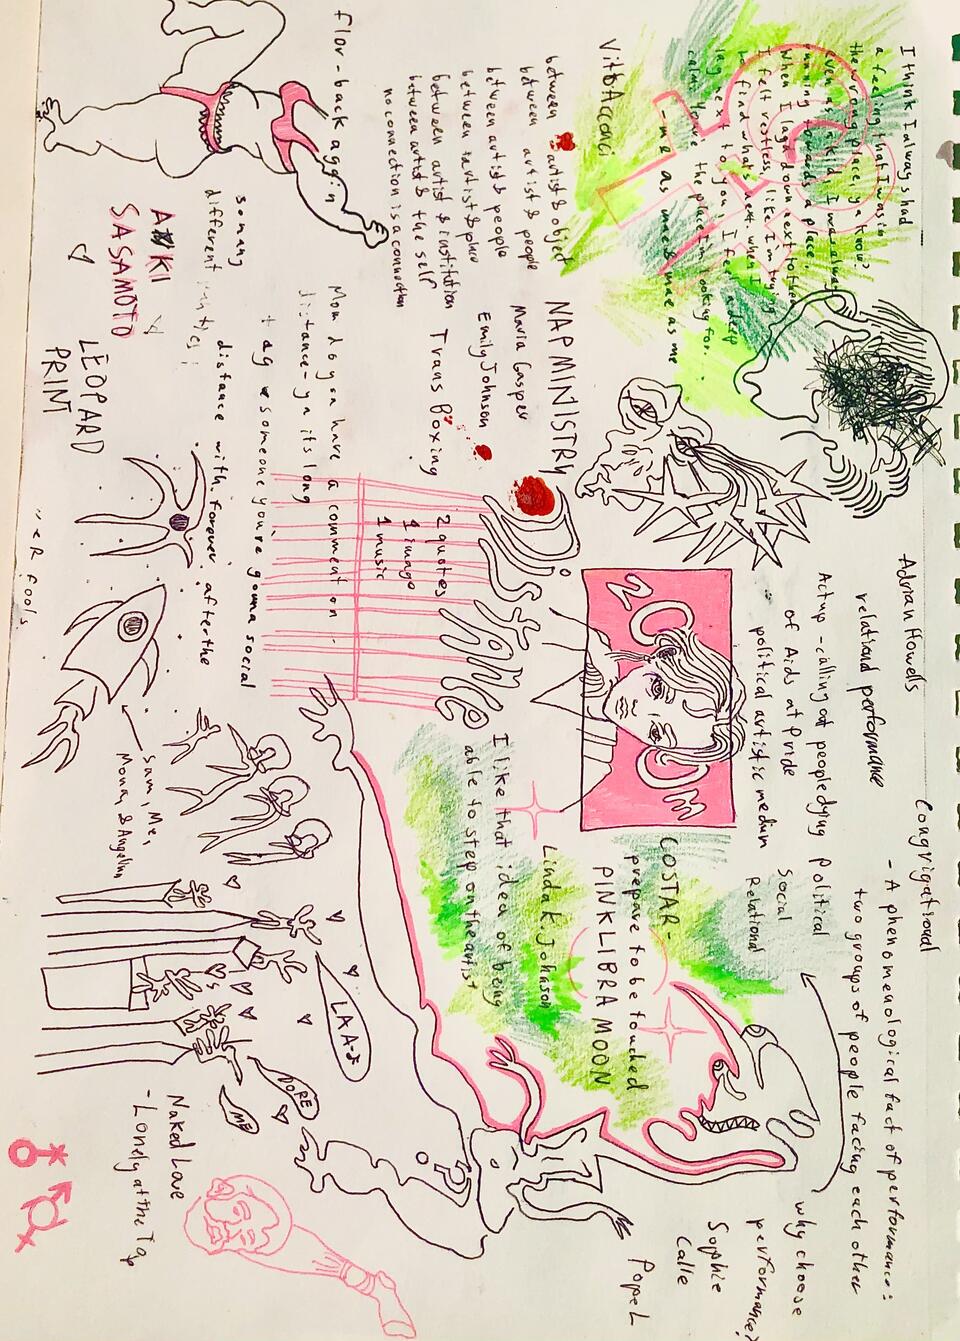 I think I always had
a feeling that I was in
the wrong place, ya know?
even as a kid, I was always
running towards a place.
When I lay down next to them
I felt restless, like I'm trying
to find what's next. when I
lay next to you, I feel a deep
calm. You're the place I'm looking for.
- me as mae & mae as me
Vito Acconci
between artist & object
between artist & people
between artist & people
between artist & place
between artist & institution
between artist & the self
no connection is a connection
NAP MINISTRY
Maria Gasper
Emily Johnson
Trans Boxing
flor-back aggin
Mom do you have a comment on
distance - ya its long
so many
different
+ ag
someone you're gonna social
distance with forever after the
AKI
SASAMOTO
LEOPARD
PRINT
"eR fools
2 quotes
1 image
1 music
DiStANCe
ZOOM
Adrian Howells
relational performance
Act up - calling out people dying
of Aids at Pride
political artistic medium
Congrigational
- A phenomenological fact of performance:
two groups of people facing each other
Political
Social
Relational
why choose
performance?
Sophie
Calle
Pope L
COSTAR -
prepare to be touched
PINK LIBRA MOON
Linda K. Johnson
I like that idea of being
able to step on the artist
Sam, Me,
Mona, & Angelina
LAA-*
DORE
ME
Naked Love
- Lonely at the Top